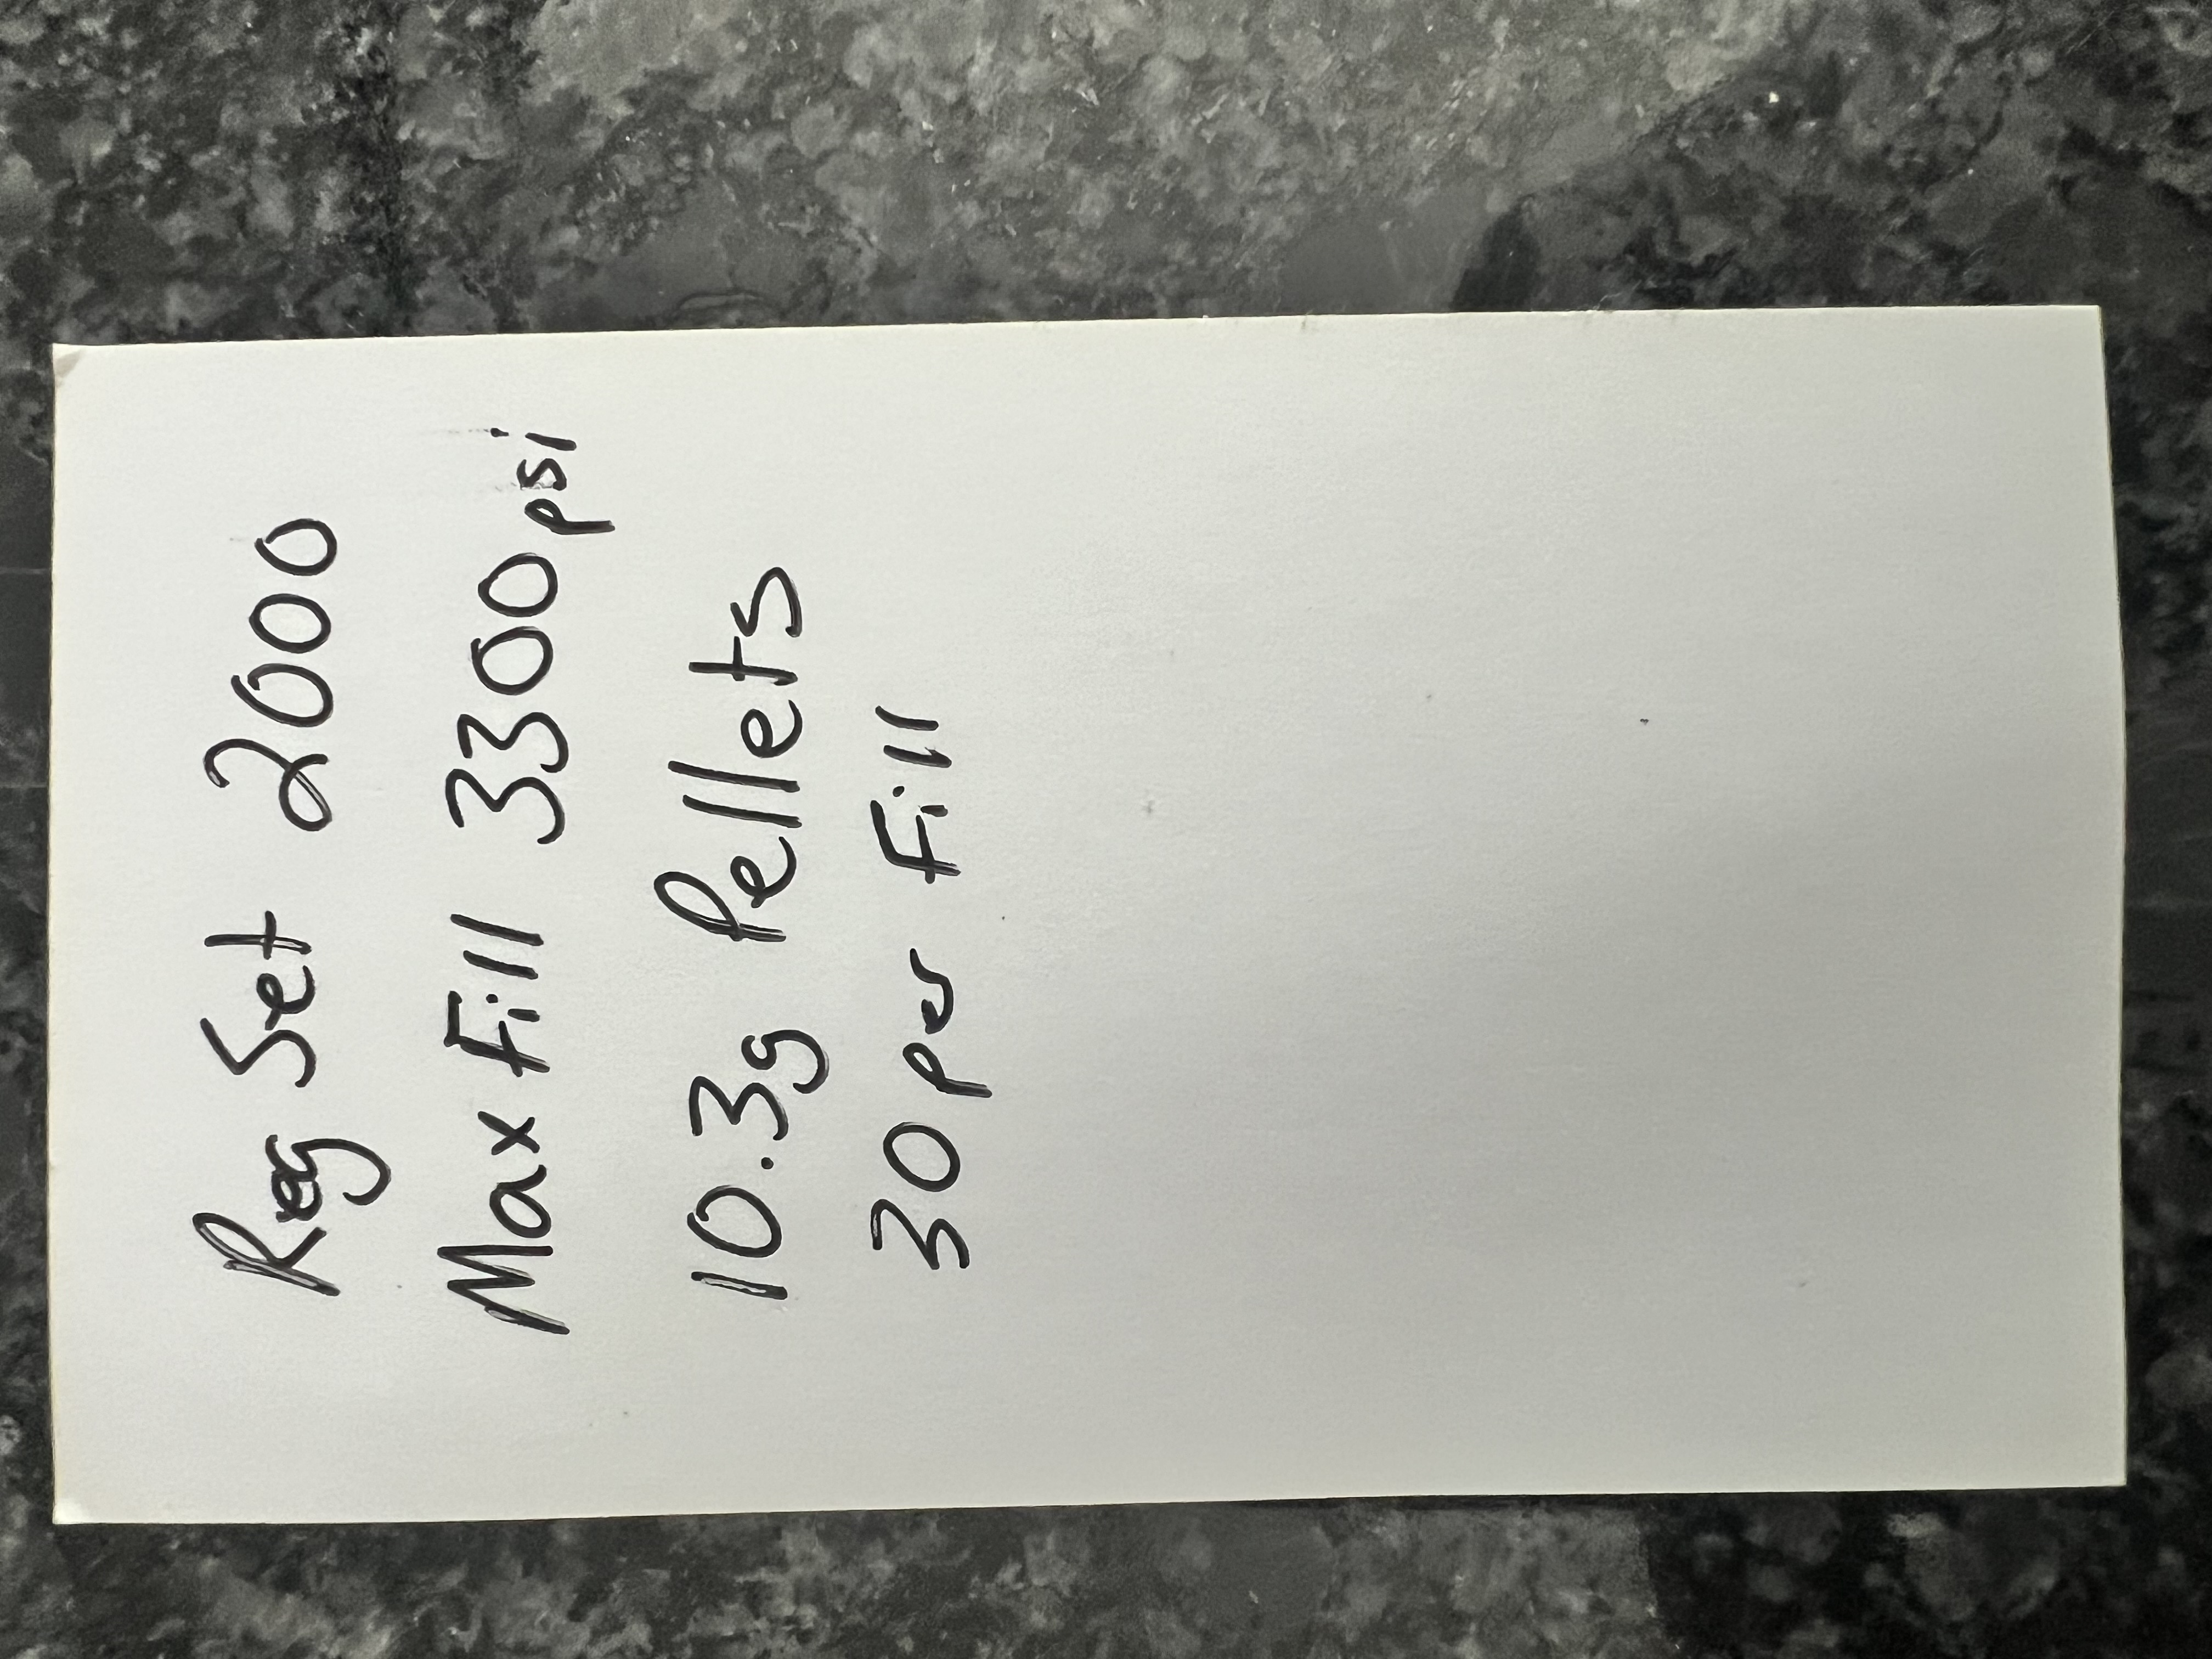 Reg Set 2000
Max Fill 3300 psi
10.3g Pellets
30 per Fill